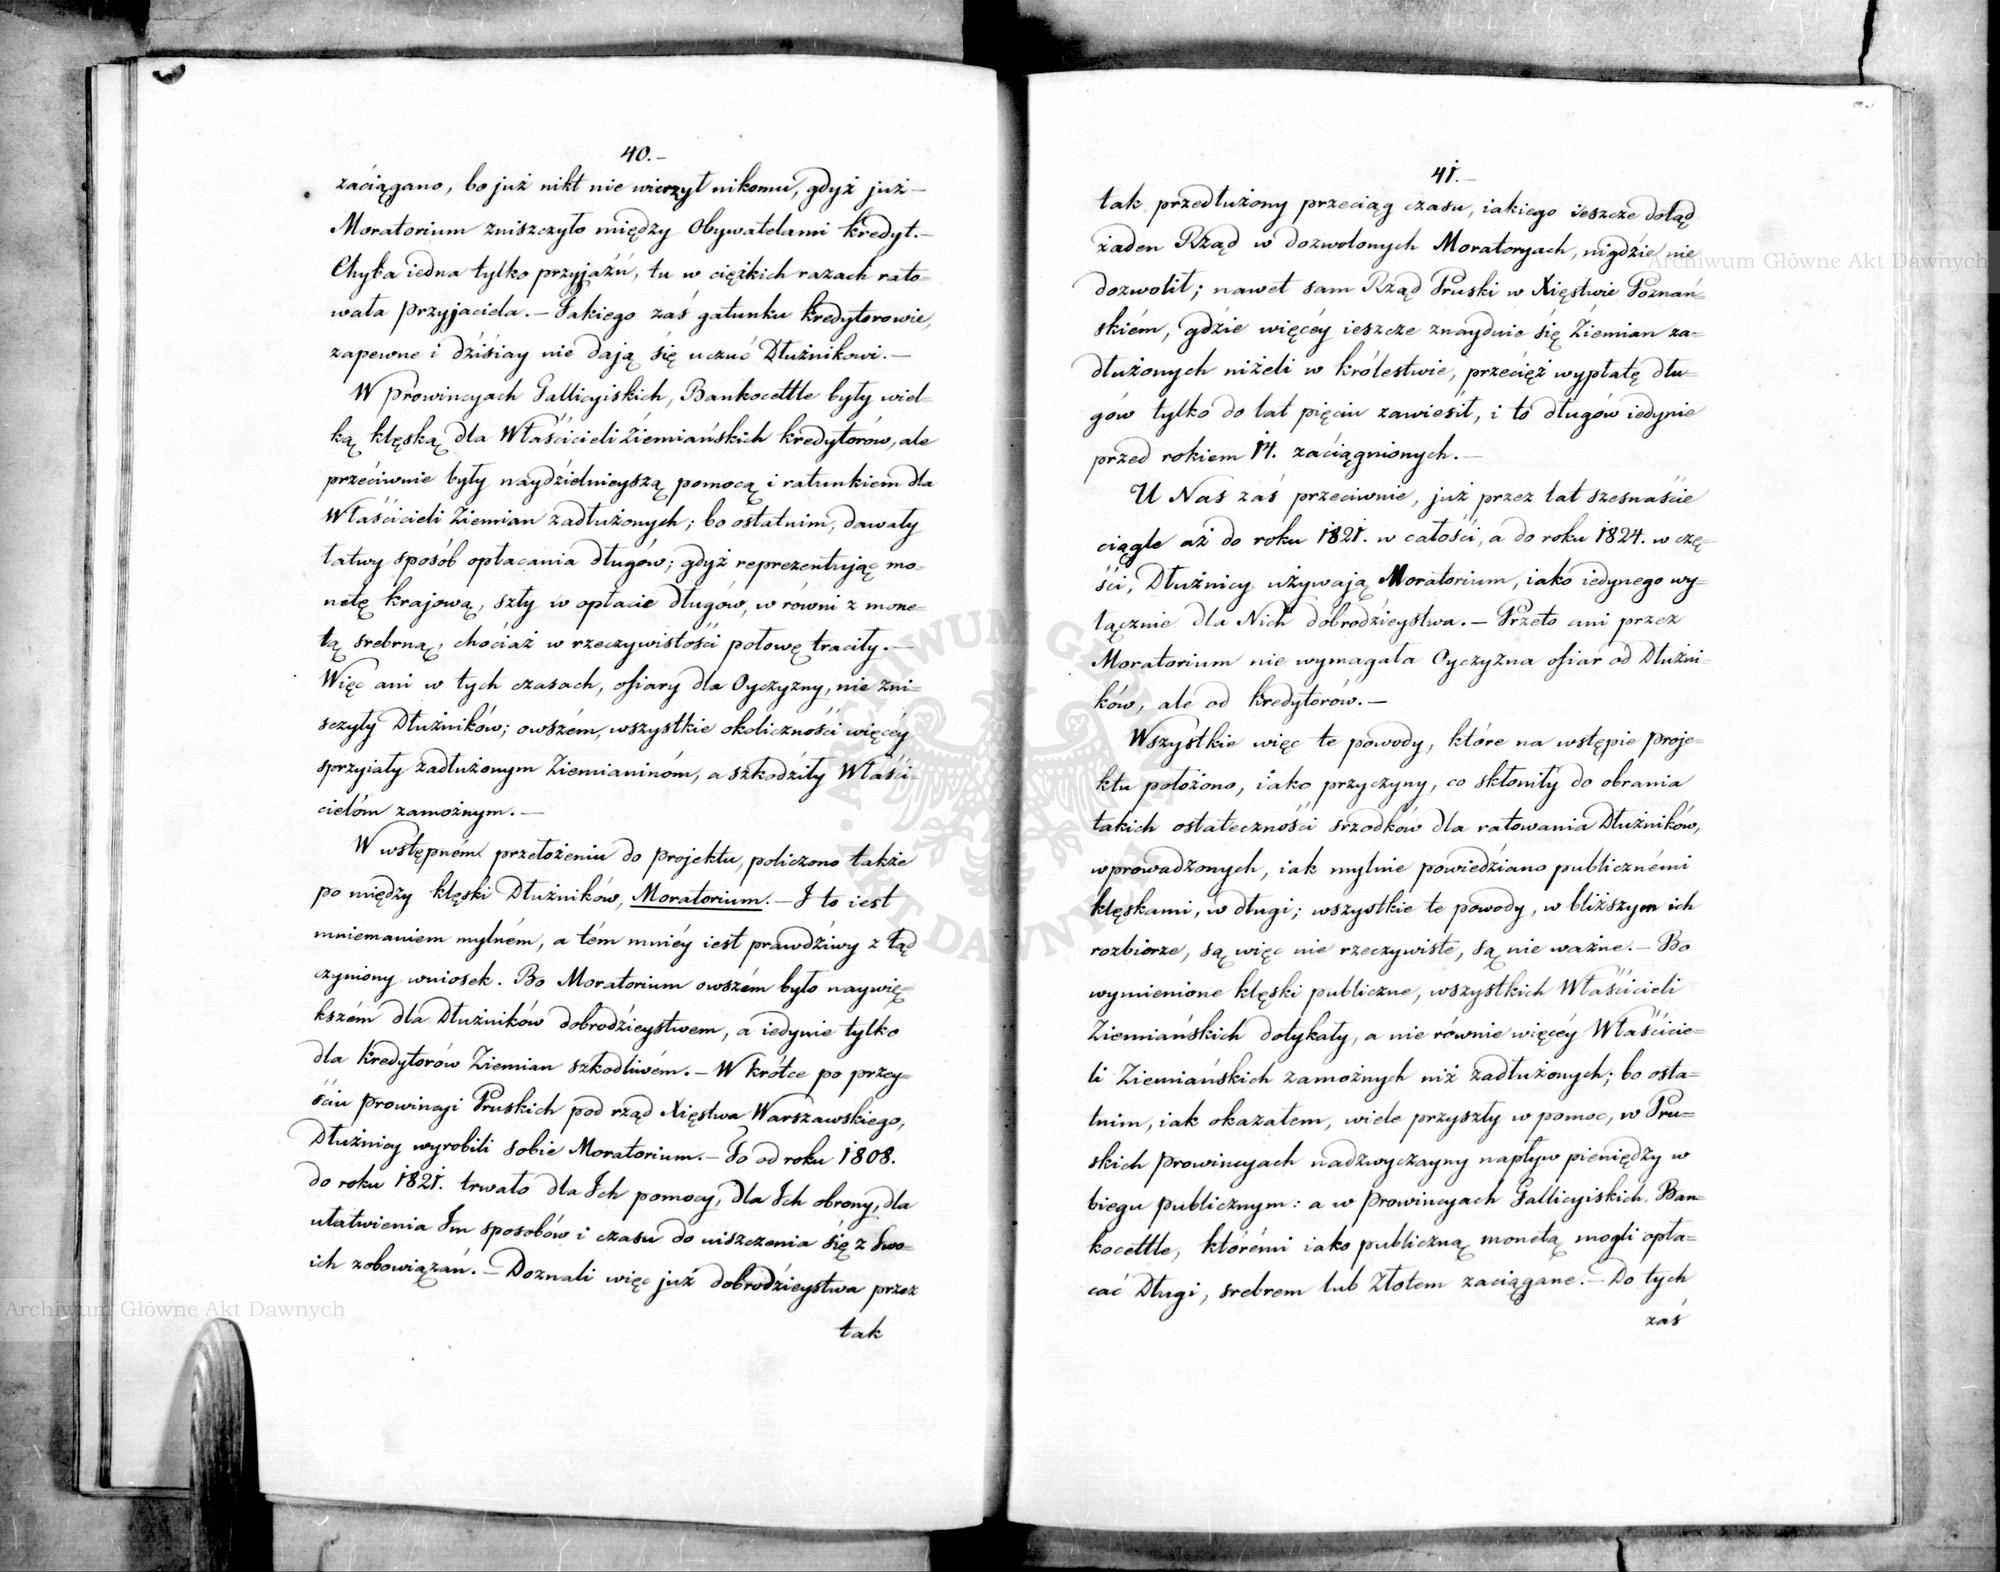 40.—
zaciągano, bo już nikt nie wierzył nikomu, gdyż już—
Moratorium zniszczyło między Obywatelami kredyt.—
Chyba iedna tylko przyjaźń, tu w ciężkich razach rato=
wała przyjaciela.— Jakiego zaś gatunku kredytorowie,
zapewne i dzisiay nie dają się uczuć Dłużnikowi.—
W prowincyach Gallicyiskich, Bankocettle były wiel=
ką klęską dla Właścicieli Ziemiańskich kredytorów, ale
przeciwnie były naydzielnieyszą pomocą i ratunkiem dla
Właścicieli Ziemian zadłużonych; bo ostatnim, dawały
łatwy sposób opłacania długów; gdyż reprezentując mo=
netę krajową, szły w opłacie długów, w równi z mone=
tą srebrną, chociaż w rzeczywistości połowę traciły.—
Więc ani w tych czasach, ofiary dla Oyczyzny, nie zni=
sczyły Dłużników; owszém, wszystkie okoliczności więcéy
sprzyiały zadłużonym Ziemianinóm, a szkodziły Właści=
cielóm zamożnym.—
W wstępném przełożeniu do projektu, policzono także
po między klęski Dłużników, Moratorium.— I to iest
mniemaniem mylném, a tém mniéy iest prawdziwy z tąd
czyniony wniosek. Bo Moratorium owszém było naywię=
kszém dla Dłużników dobrodzieystwem, a iedynie tylko
dla kredytorów Ziemian szkodliwém.— W krótce po przey=
ściu prowincyi Pruskich pod rząd Xięstwa Warszawskiego,
Dłużnicy wyrobili sobie Moratorium.— To od roku 1808.
do roku 1821. trwało dla Ich pomocy, dla Ich obrony, dla
ułatwienia Im sposobów i czasu do uiszczenia się z Swo=
ich zobowiązań.— Doznali więc już dobrodzieystwa przez
tak
41.—
tak przedłużony przeciąg czasu, iakiego ieszcze dotąd
żaden Rząd w dozwolonych Moratoryach, nigdzie nie
dozwolił; nawet sam Rząd Pruski w Xięstwie Poznań=
skiém, gdzie więcéy ieszcze znayduie się Ziemian za=
dłużonych niżeli w królestwie, przecięż wypłatę dłu=
gów tylko do lat pięciu zawiesił, i to długów iedynie
przed rokiem 14. zaciągnionych.—
U Nas zaś przeciwnie, już przez lat szesnaście
ciągle aż do roku 1821. w całości, a do roku 1824. w czę=
ści, Dłużnicy używają Moratorium, iako iedynego wy=
łącznie dla Nich dobrodzieystwa.— Przeto ani przez
Moratorium nie wymagała Oyczyzna ofiar od Dłużni=
ków, ale od kredytorów.—
Wszystkie więc te powody, które na wstępie proje=
ktu położono, iako przyczyny, co skłoniły do obrania
takich ostateczności srzodków dla ratowania Dłużników,
wprowadzonych, iak mylnie powiedziano publicznémi
klęskami, w długi; wszystkie te powody, w bliższym ich
rozbiorze, są więc nie rzeczywiste, są nie ważne.— Bo
wymienione klęski publiczne, wszystkich Właścicieli
Ziemiańskich dotykały, a nie równie więcéy Właścicie=
li Ziemiańskich zamożnych niż zadłużonych; bo osta=
tnim, iak okazałem, wiele przyszły w pomoc, w Pru=
skich prowincyach nadzwyczayny napływ pieniędzy w
biegu publicznym: a w prowincyach Gallicyiskich, Ban=
kocettle, którémi iako publiczną monetą mogli opła=
cać Długi, srebrem lub Złotem zaciągane.— Do tych
zaś
Archiwum Główne Akt Dawnych
Archiwum Główne Akt Dawnych